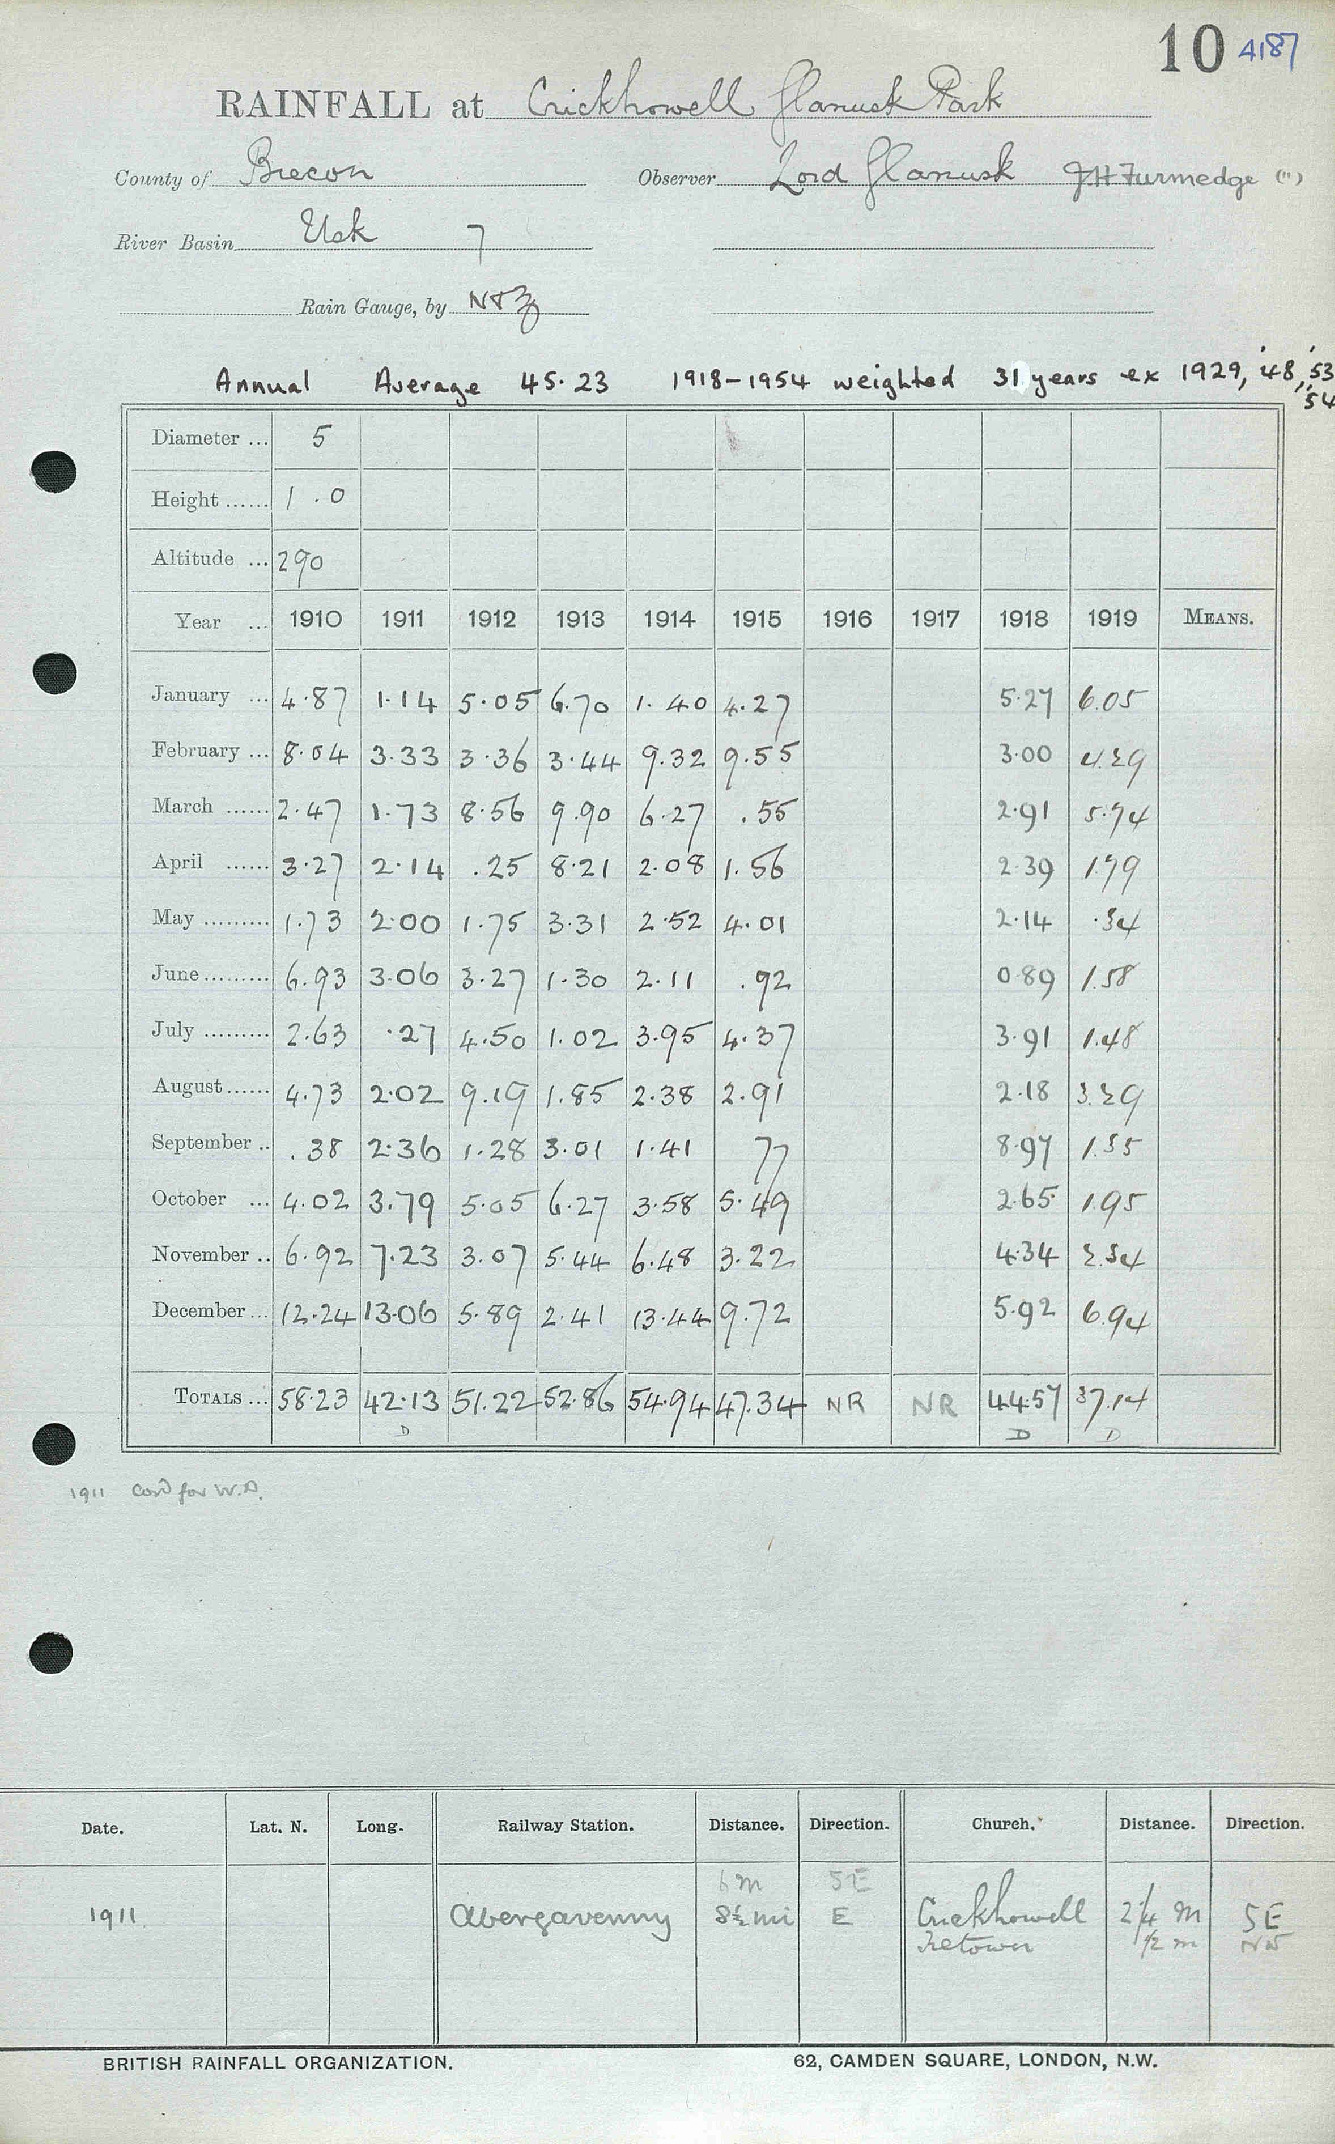 10 4187
RAINFALL at Crickhowell Glanusk Park
County of Brecon Observer Lord Glanusk J.H Furmedge (")
River Basin Usk 7
Rain Gauge, by N & Z
Annual Average 45.23 1918-1954 weighted 31 years ex 1929, '48, '53
'54
Diameter ... 5
Height ...... 1.0
Altitude ... 290
Year ... 1910 1911 1912 1913 1914 1915 1916 1917 1918 1919 MEANS.
January ... 4.87 1.14 5.05 6.70 1.40 4.27 5.27 6.05
February ... 8.04 3.33 3.36 3.44 9.32 9.55 3.00 4.29
March ...... 2.47 1.73 8.56 9.90 6.27 .55 2.91 5.74
April ...... 3.27 2.14 .25 8.21 2.08 1.56 2.39 1.79
May ......... 1.73 2.00 1.75 3.31 2.52 4.01 2.14 .34
June ......... 6.93 3.06 3.27 1.30 2.11 .92 0.89 1.58
July ......... 2.63 .27 4.50 1.02 3.95 4.37 3.91 1.48
August ...... 4.73 2.02 9.19 1.85 2.38 2.91 2.18 3.29
September .. .38 2.36 1.28 3.01 1.41 77 8.97 1.35
October ... 4.02 3.79 5.05 6.27 3.58 5.49 2.65 1.95
November .. 6.92 7.23 3.07 5.44 6.48 3.22 4.34 2.34
December ... 12.24 13.06 5.89 2.41 13.44 9.72 5.92 6.94
TOTALS ... 58.23 42.13 51.22 52.86 54.94 47.34 NR NR 44.57 37.14
D D D
1911 Cord for W.D.
Date. Lat. N. Long. Railway Station. Distance. Direction. Church. Distance. Direction.
6 m SE
1911 Abergavenny 8½ mi E Crickhowell 2¼ m SE
Tretower ½ m NW
BRITISH RAINFALL ORGANIZATION. 62, CAMDEN SQUARE, LONDON, N.W.